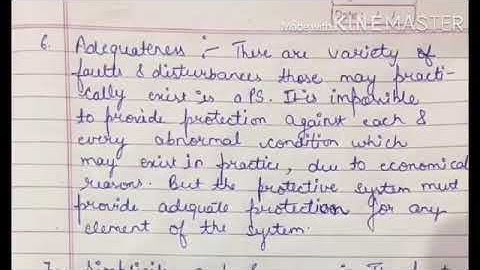 Made with KINEMASTER
6. Adequateness :- There are variety of
faults & disturbances those may practi-
cally exist is a PS. It is impossible
to provide protection against each &
every abnormal condition which
may exist in practice, due to economical
reasons. But the protective system must
provide adequate protection for any
element of the system.
7. Simplicity and